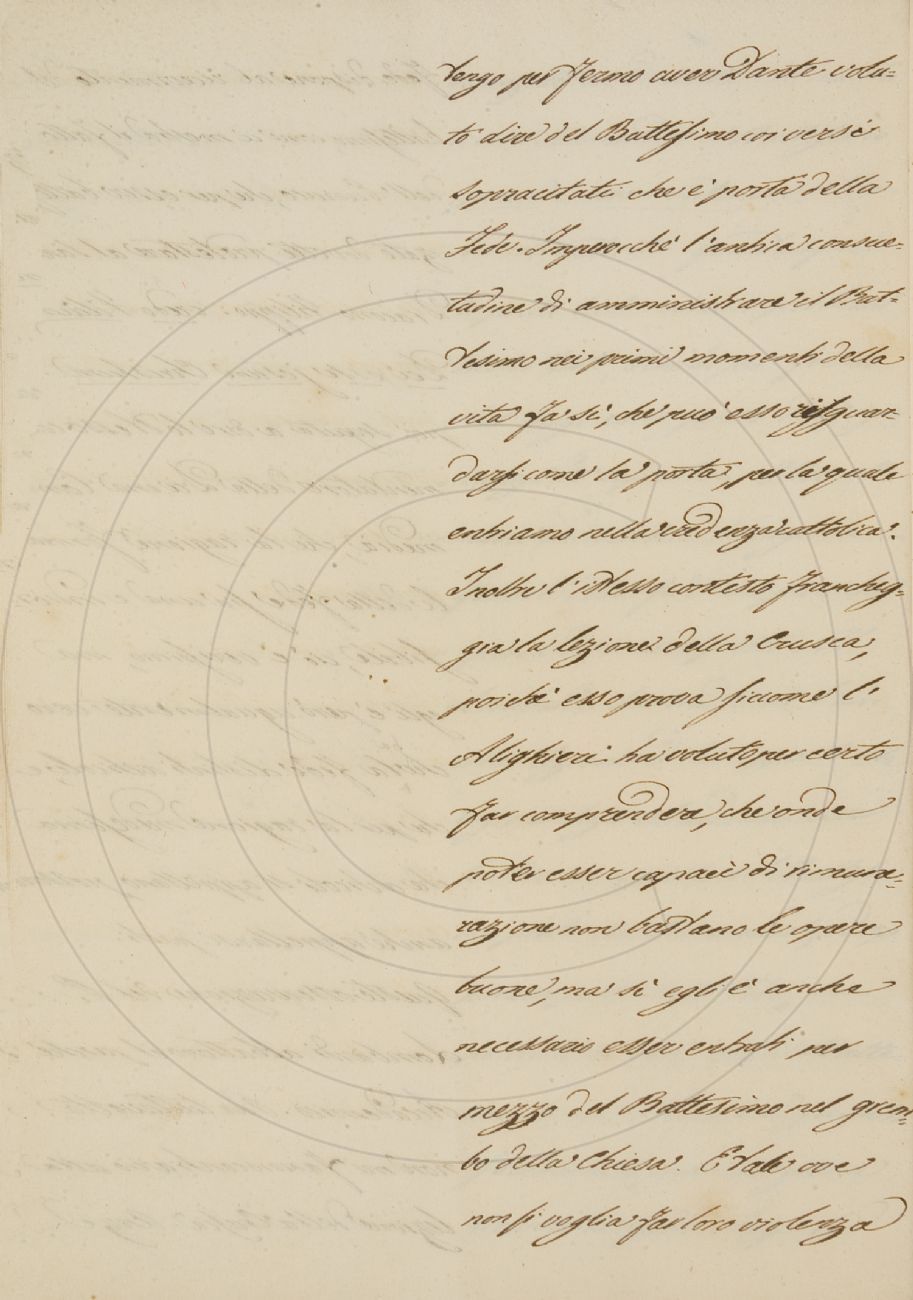 tengo per fermo aver Dante volu-
to dire del Battesimo coi versi
sopracitati che è porta della
Fede. Imperocchè l'antica consue-
tudine di amministrare il Bat-
tesimo nei primi momenti della
vita fa sì, che può esso risguar-
darsi come la porta, per la quale
entriamo nella credenza cattolica.
Inoltre l'istesso contesto francheg-
gia la lezione della Crusca,
poichè esso prova siccome l'
Alighieri ha voluto per certo
far comprendere, che onde
poter esser capaci di rimune-
razione non bastano le opere
buone, ma sì egli è anche
necessario esser entrati per
mezzo del Battesimo nel grem-
bo della Chiesa. E tale ove
non si voglia far loro violenza